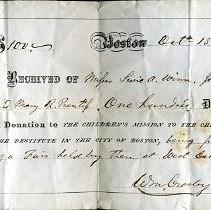 $100 00/ Boston Oct. 13
RECEIVED OF Misses A. Winn,
Mary R. One Hundred D
Donation to THE CHILDREN'S MISSION TO THE CH
HE DESTITUTE IN THE CITY OF BOSTON, being p
a Fair held by them at West
Wm. Crosby